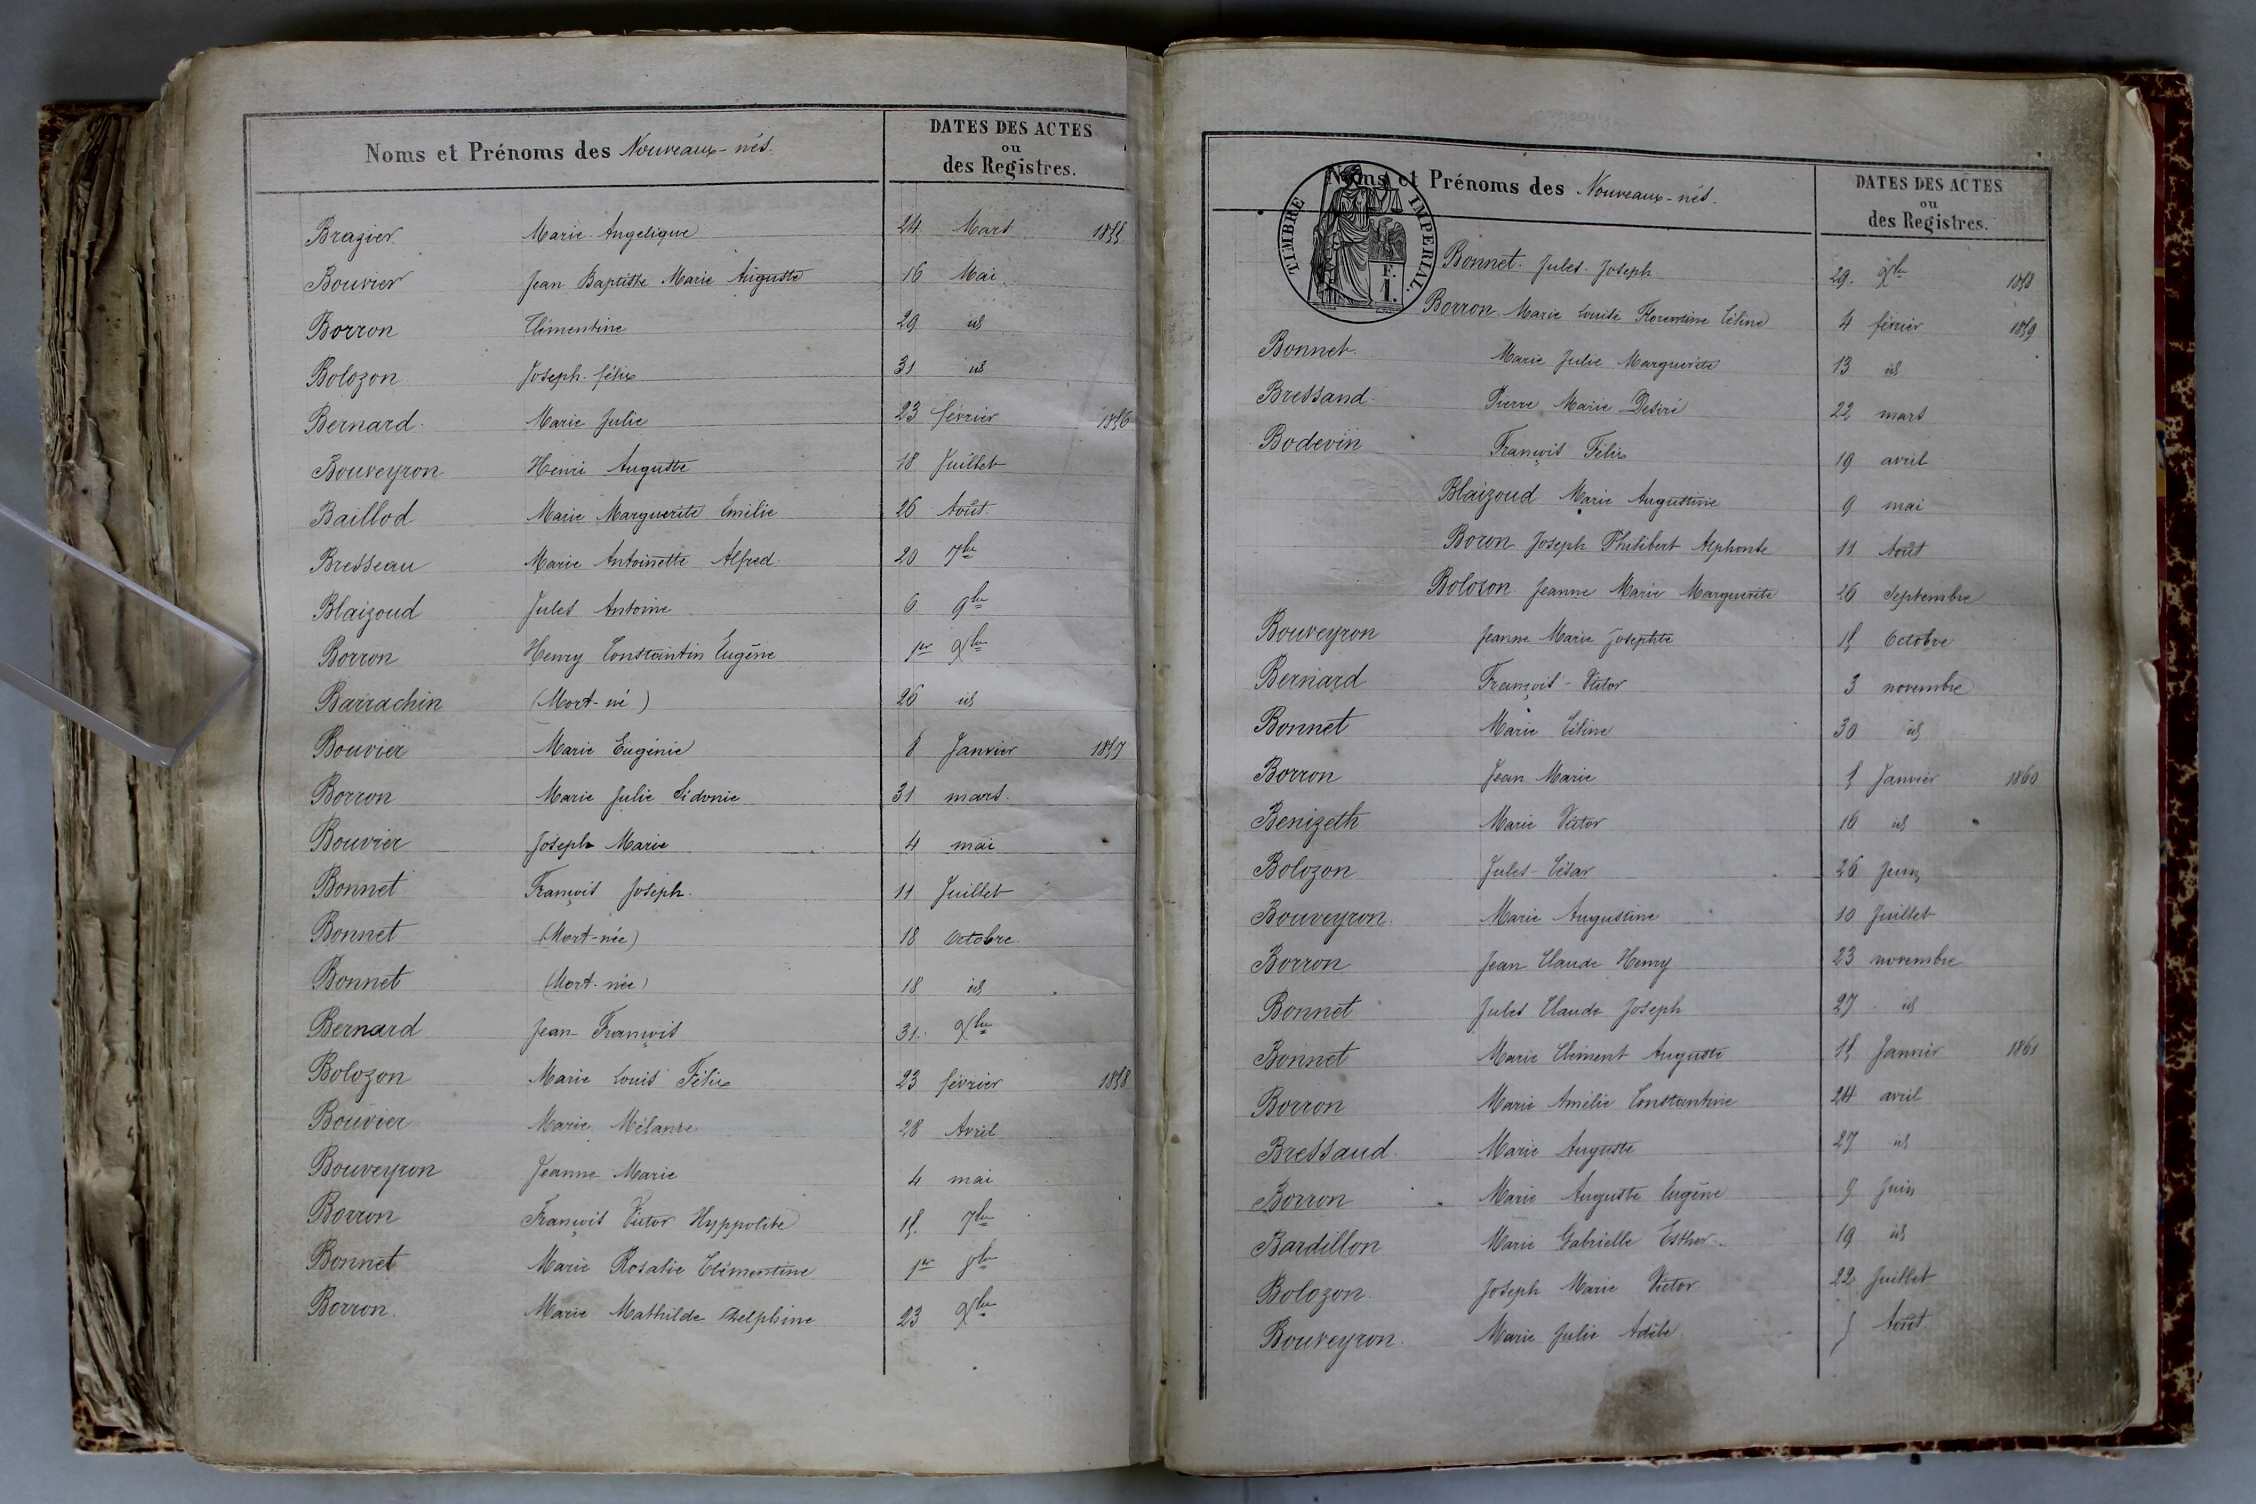 Noms et Prénoms des Nouveaux-nés.
DATES DES ACTES
ou
des Registres.
Brazier Marie Angelique 24 Mars 1855
Bouvier Jean Baptiste Marie Auguste 16 Mai
Borron Clémentine 29 id
Bolozon Joseph félix 31 id
Bernard Marie Julie 23 février 1856
Bouveyron Henri Auguste 18 Juillet
Baillod Marie Marguerite Emilie 26 Août
Bresseau Marie Antoinette Alfred 20 7bre
Blaizoud Jules Antoine 6 9bre
Borron Henry Constantin Eugène 1er Xbre
Barrachin (Mort-né) 26 id
Bouvier Marie Eugénie 8 Janvier 1857
Borron Marie Julie Sidonie 31 mars
Bouvier Joseph Marie 4 mai
Bonnet François Joseph 11 Juillet
Bonnet (Mort-née) 18 Octobre
Bonnet (Mort-née) 18 id
Bernard Jean François 31 Xbre
Bolozon Marie Louis Félix 23 février 1858
Bouvier Marie Mélanie 28 Avril
Bouveyron Jeanne Marie 4 mai
Borron François Victor Hyppolite 15 7bre
Bonnet Marie Rosalie Clémentine 1er 8bre
Borron Marie Mathilde Delphine 23 Xbre
TIMBRE IMPERIAL.
F.
1.
Noms et Prénoms des Nouveaux-nés.
DATES DES ACTES
ou
des Registres.
Bonnet Jules Joseph 29 Xbre 1858
Borron Marie Louise Florentine Céline 4 février 1859
Bonnet Marie Julie Marguerite 13 id
Bressand Pierre Marie Desiré 22 mars
Bodevin François Félix 19 avril
Blaizoud Marie Augustine 9 mai
Boron Joseph Philibert Alphonse 11 Août
Boloson Jeanne Marie Marguerite 26 Septembre
Bouveyron Jeanne Marie Josephte 15 Octobre
Bernard François-Victor 3 novembre
Bonnet Marie Céline 30 id
Borron Jean Marie 5 Janvier 1860
Benizeth Marie Victor 16 id
Bolozon Jules César 26 Juin
Bouveyron Marie Augustine 10 Juillet
Borron Jean Claude Henry 23 novembre
Bonnet Jules Claude Joseph 27 id
Bonnet Marie Clément Auguste 15 Janvier 1861
Borron Marie Amélie Constantine 24 avril
Bressaud Marie Auguste 27 id
Borron Marie Auguste Eugène 9 Juin
Bardillon Marie Gabrielle Esther 19 id
Bolozon Joseph Marie Victor 22 Juillet
Bouveyron Marie Julie Adèle 5 Août